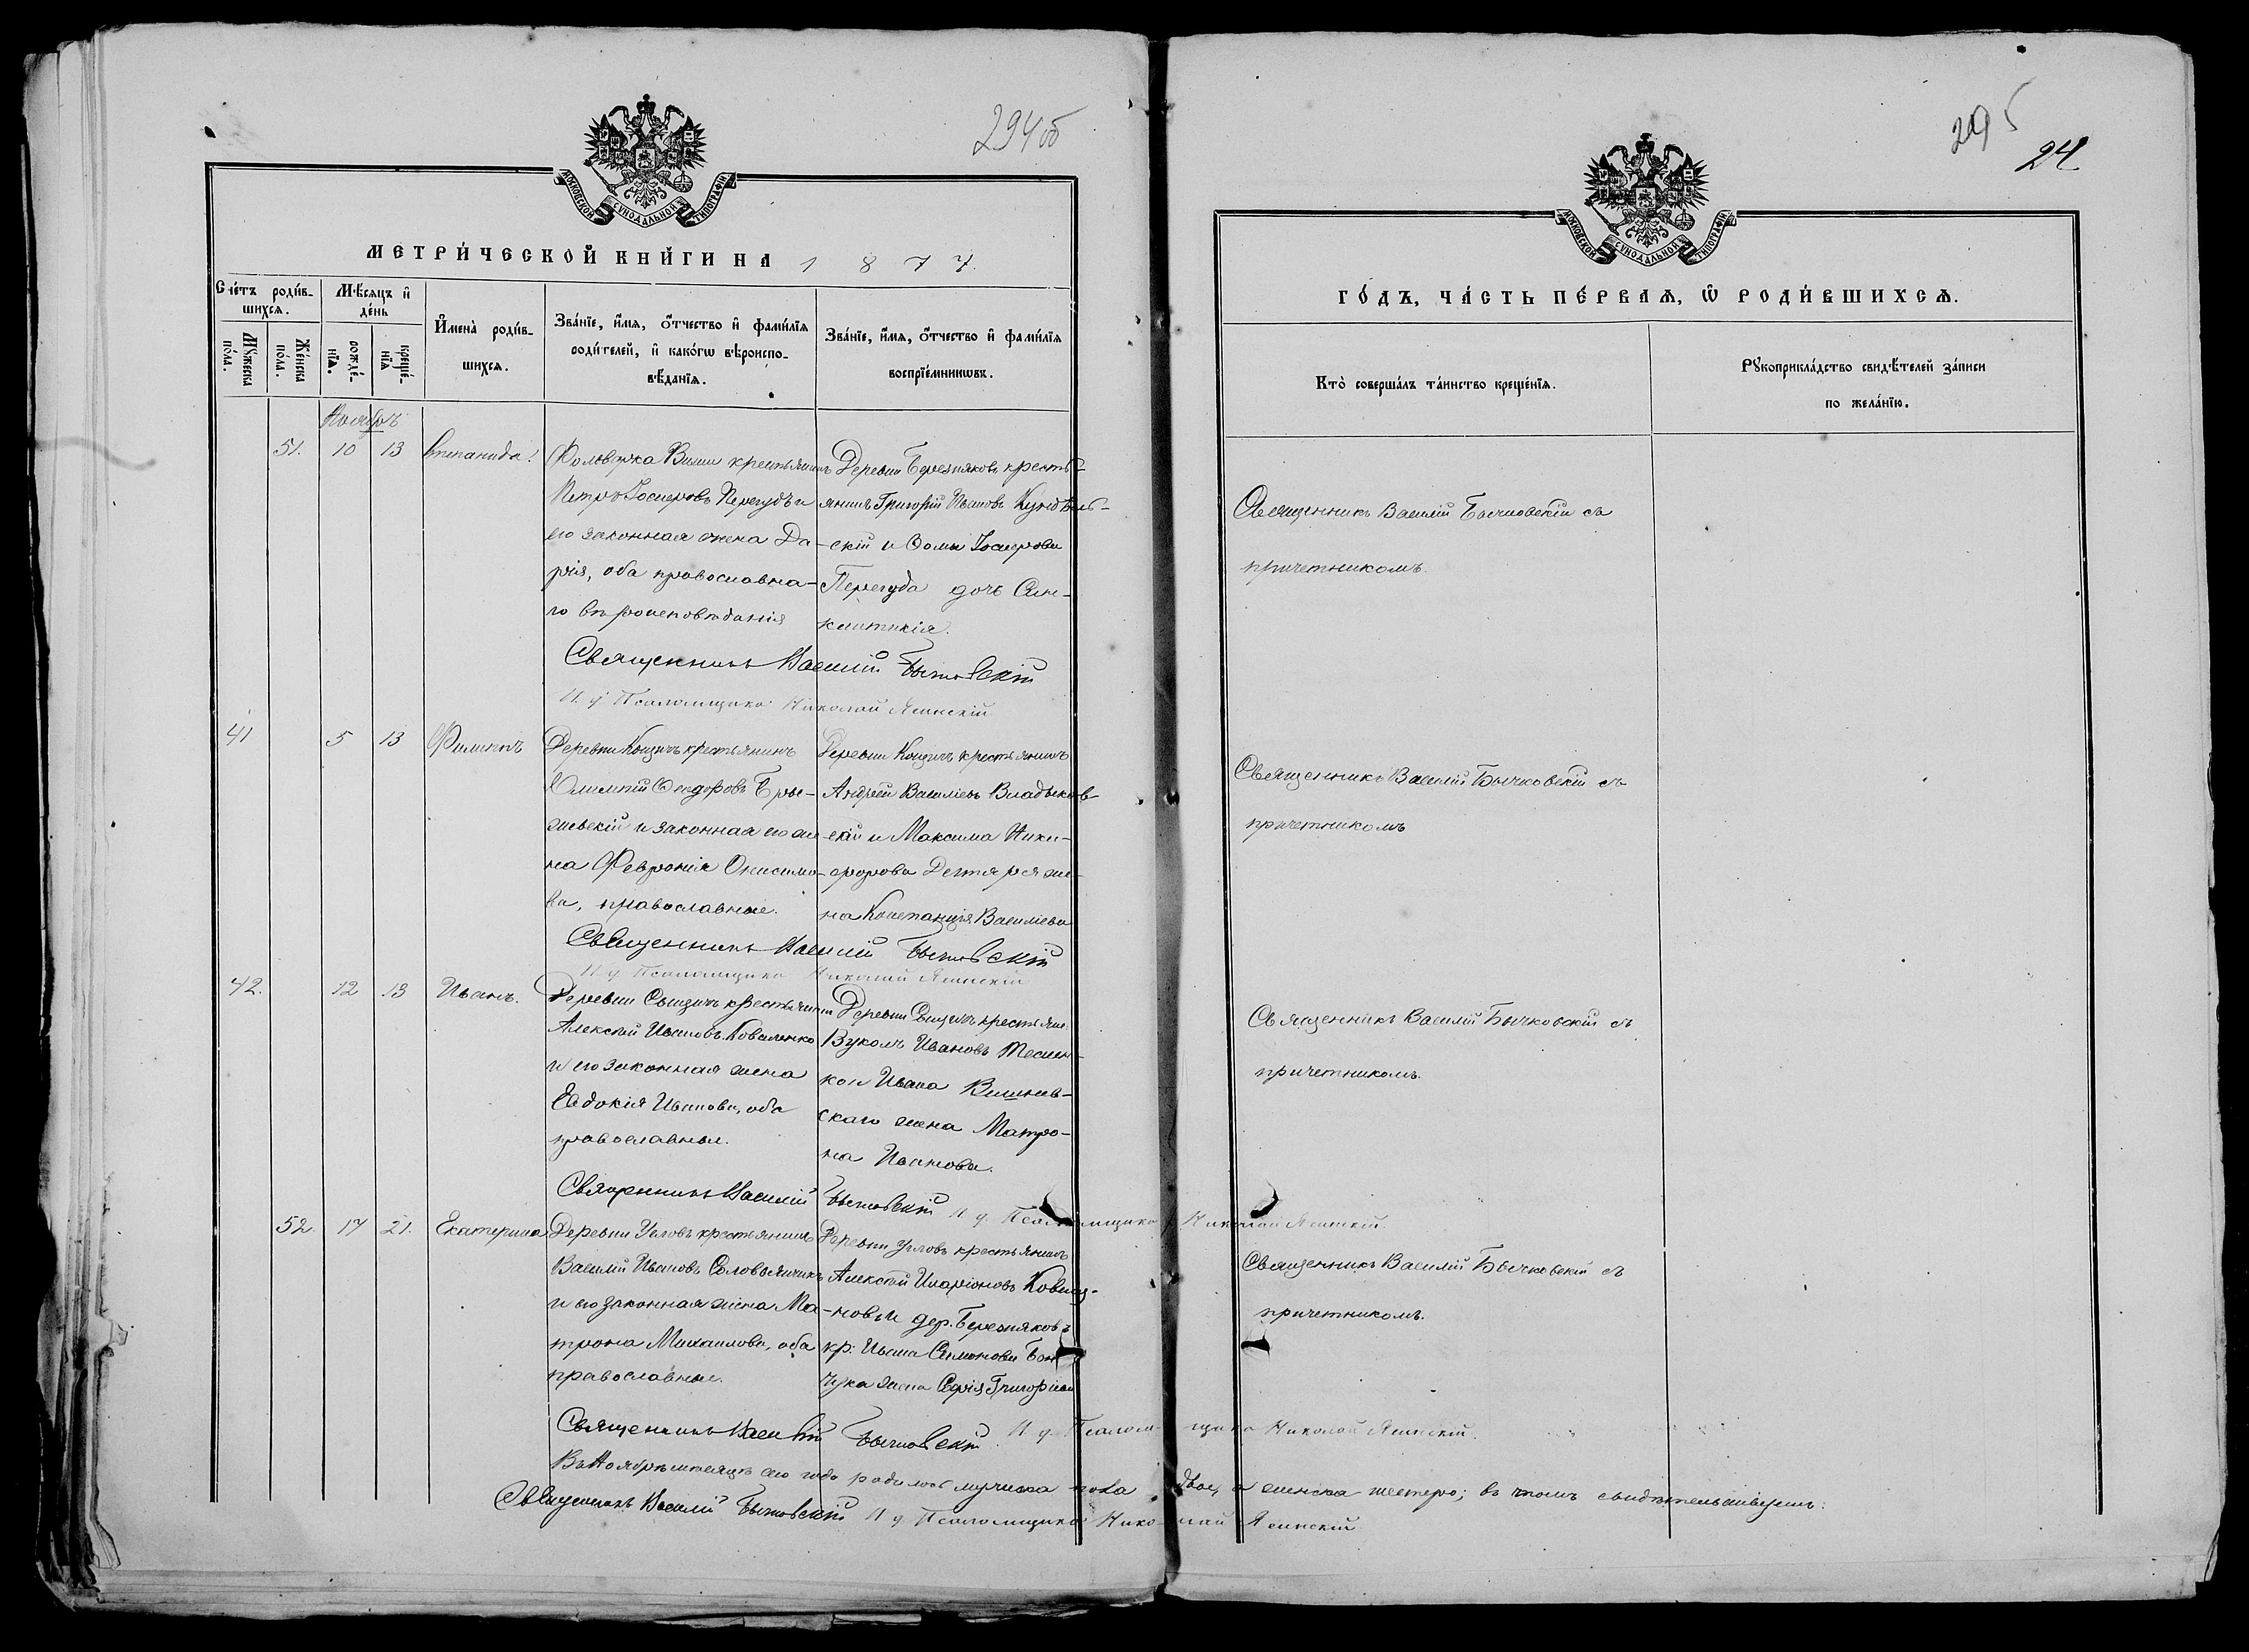 294об
МОСКОВСКОЙ СѴНОДАЛЬНОЙ ТИПОГРАФІИ
МЕТРИ́ЧЕСКОЙ КНИ́ГИ НА 1874.
Сче́тъ роди́вшихсѧ.
Мѣ́сѧцъ и҆ де́нь
И҆мена̀ роди́вшихсѧ.
Зва́нїе, и҆́мѧ, ѻ҆́тчество и҆ фами́лїѧ роди́телей, и҆ како́гѡ вѣроисповѣ́данїѧ.
Зва́нїе, и҆́мѧ, ѻ҆́тчество и҆ фами́лїѧ воспрїе́мникѡвъ.
Мꙋ́жеска по́ла.
Же́нска по́ла.
рожде́нїѧ.
креще́нїѧ
Ноябрь
51. 10 13
Фольварка крестьянинъ
Петръ Іосифовъ Перегудъ и
его законная жена Да-
рія, оба православна-
го вѣроисповѣданія
Деревни Березняковъ кресть-
янинъ Григорій Ивановъ
скій и Ѳомы Іосифова
Перегуда дочь Син-
клитикія.
Священникъ Василій Бычковскій
И. д. Псаломщика Николай Ясинскій
41 5 13 Филиппъ
Деревни крестьянинъ
Олимпій Ѳеодоровъ
и законная его же-
на Февронія Онисимо-
ва, православные.
Деревни крестьянинъ
Андрей Василіевъ Владыков-
скій и Максима Ники-
форова Дегтяря же-
на Констанція Василіева
Священникъ Василій Бычковскій
И. д. Псаломщика Николай Ясинскій
42. 12 13 Иванъ.
Деревни крестьянинъ
Алексѣй Ивановъ Коваленко
и его законная жена
Евдокія Иванова, оба
православные.
Деревни крестьянинъ
Вуколъ Ивановъ
ко и Ивана Вишнев-
скаго жена Матро-
на Иванова.
Священникъ Василій Бычковскій И. д. Псаломщика Николай Ясинскій.
52. 17 21. Екатерина
Деревни Угловъ крестьянинъ
Василій Ивановъ Соловьянчикъ
и его законная жена Ма-
трона Михаилова, оба
православные.
Деревни Угловъ крестьянинъ
Алексѣй Иларіоновъ
дер. Березняковъ
кр. Ивана Симонова
чука жена Софія Григоріева
Священникъ Василій Бычковскій И. д. Псаломщика Николай Ясинскій.
Въ Ноябрѣ мѣсяцѣ сего года родилось мужеска пола двое, а женска шестеро; въ чемъ свидѣтельствуемъ:
Священникъ Василій Бычковскій И. д. Псаломщика Николай Ясинскій
295
24
МОСКОВСКОЙ СѴНОДАЛЬНОЙ ТИПОГРАФІИ
ГО́ДЪ, ЧА́СТЬ ПЕ́РВАѦ, Ѡ҆ РОДИ́ВШИХСѦ.
Кто̀ соверша́лъ та́инство креще́нїѧ.
Рꙋкоприкла́дство свидѣ́телей за́писи по жела́нїю.
Священникъ Василій Бычковскій съ
причетникомъ.
Священникъ Василій Бычковскій съ
причетникомъ
Священникъ Василій Бычковскій съ
причетникомъ.
Священникъ Василій Бычковскій съ
причетникомъ.